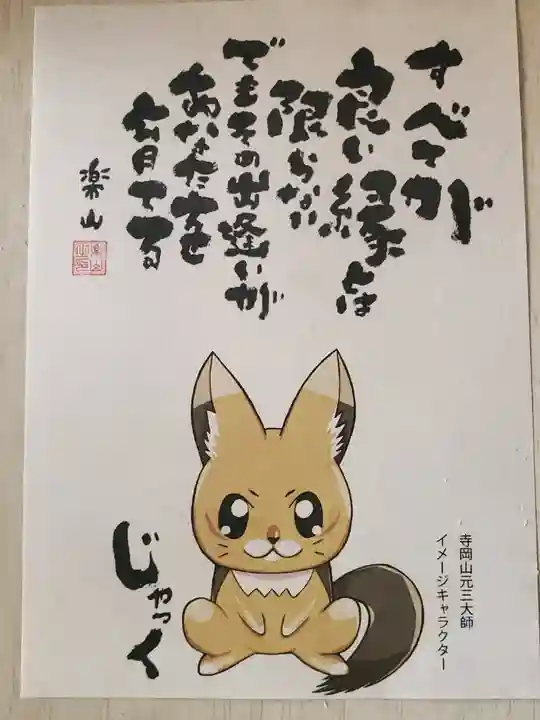 すべてが
良い縁とは
限らない
でもその出逢いが
あなたを
育てる
楽山
寺岡山元三大師
イメージキャラクター
じゃっく